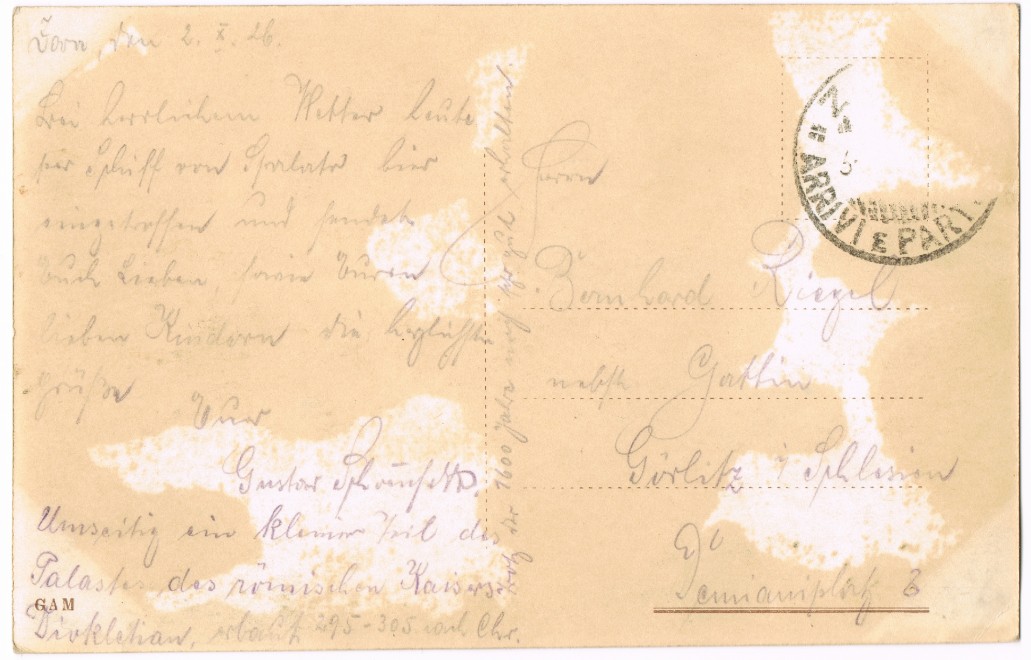 Zara, den 2. X. 26.
Bei herrlichem Wetter heute
per Schiff von Spalato hier
eingetroffen und sendet
Euch Lieben, sowie Euren
lieben Kindern die herzlichsten
Grüße
Euer
Gustav
Umseitig ein kleiner Teil des
Palastes des römischen Kaisers
Diokletian, erbaut 295-305 nach Chr.
trotz der 1600 Jahre noch sehr gut erhalten.
GAM
ARRIVI E PART
Herrn
Bernhard Riegel
nebst Gattin
Görlitz i Schlesien
Demianiplatz